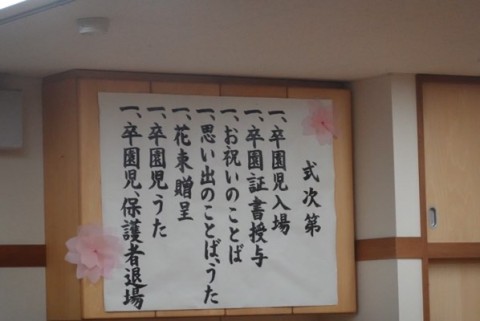 式次第
一、卒園児入場
一、卒園証書授与
一、お祝いのことば
一、思い出のことば、うた
一、花束贈呈
一、卒園児うた
一、卒園児、保護者退場